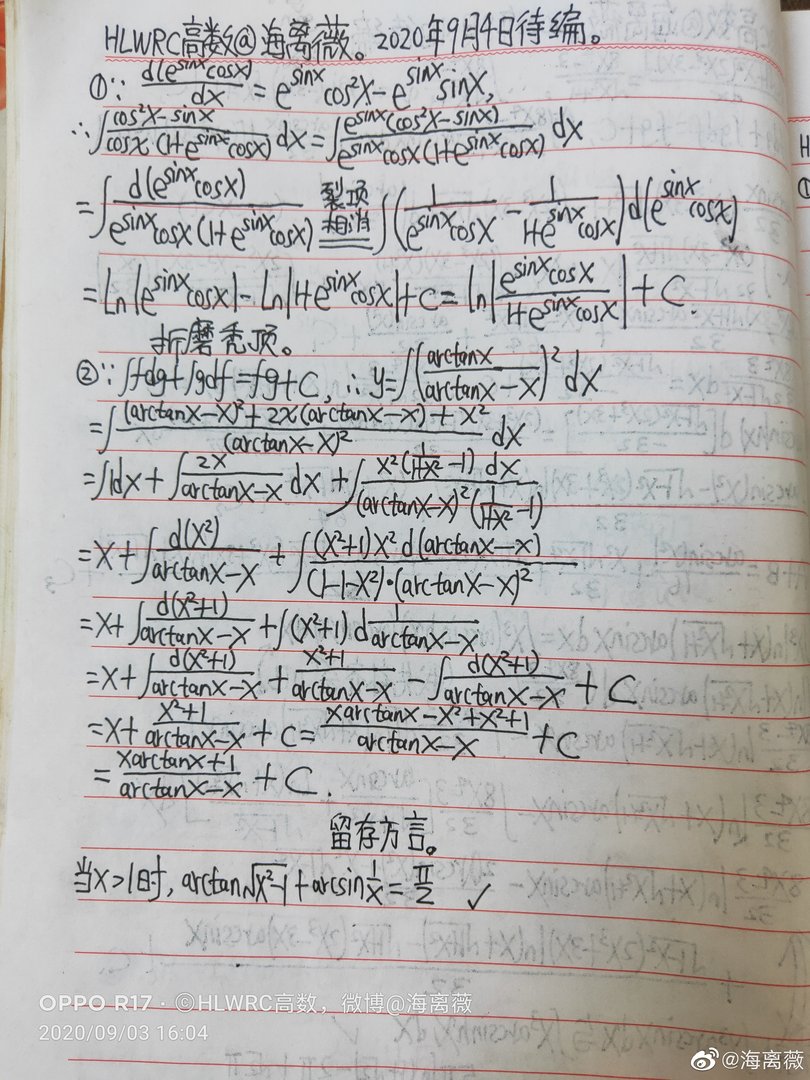 HLWRC高数@海离薇。2020年9月4日待编。
①∵ d(e^sinx cosx)/dx = e^sinx cos²x - e^sinx sinx,
∴ ∫ (cos²x-sinx)/(cosx·(1+e^sinx cosx)) dx = ∫ e^sinx(cos²x-sinx)/(e^sinx cosx(1+e^sinx cosx)) dx
= ∫ d(e^sinx cosx)/(e^sinx cosx(1+e^sinx cosx)) 裂项相消 ∫(1/(e^sinx cosx) - 1/(1+e^sinx cosx)) d(e^sinx cosx)
= Ln|e^sinx cosx| - Ln|1+e^sinx cosx| + C = ln|e^sinx cosx/(1+e^sinx cosx)| + C.
折磨秃顶。
②∵ ∫fdg+∫gdf=fg+C, ∴ y=∫(arctanx/(arctanx-x))² dx
= ∫ ((arctanx-x)²+2x(arctanx-x)+x²)/(arctanx-x)² dx
= ∫1dx + ∫ 2x/(arctanx-x) dx + ∫ x²(1/(1+x²)-1) dx/((arctanx-x)²(1/(1+x²)-1))
= x + ∫ d(x²)/(arctanx-x) + ∫ (x²+1)x² d(arctanx-x)/((1-1-x²)·(arctanx-x)²)
= x + ∫ d(x²+1)/(arctanx-x) + ∫(x²+1) d 1/(arctanx-x)
= x + ∫ d(x²+1)/(arctanx-x) + (x²+1)/(arctanx-x) - ∫ d(x²+1)/(arctanx-x) + C
= x + (x²+1)/(arctanx-x) + C = (xarctanx-x²+x²+1)/(arctanx-x) + C
= (xarctanx+1)/(arctanx-x) + C.
留存方言。
当x>1时, arctan√(x²-1) + arcsin 1/x = π/2 ✓
OPPO R17·©HLWRC高数，微博@海离薇
2020/09/03 16:04
@海离薇